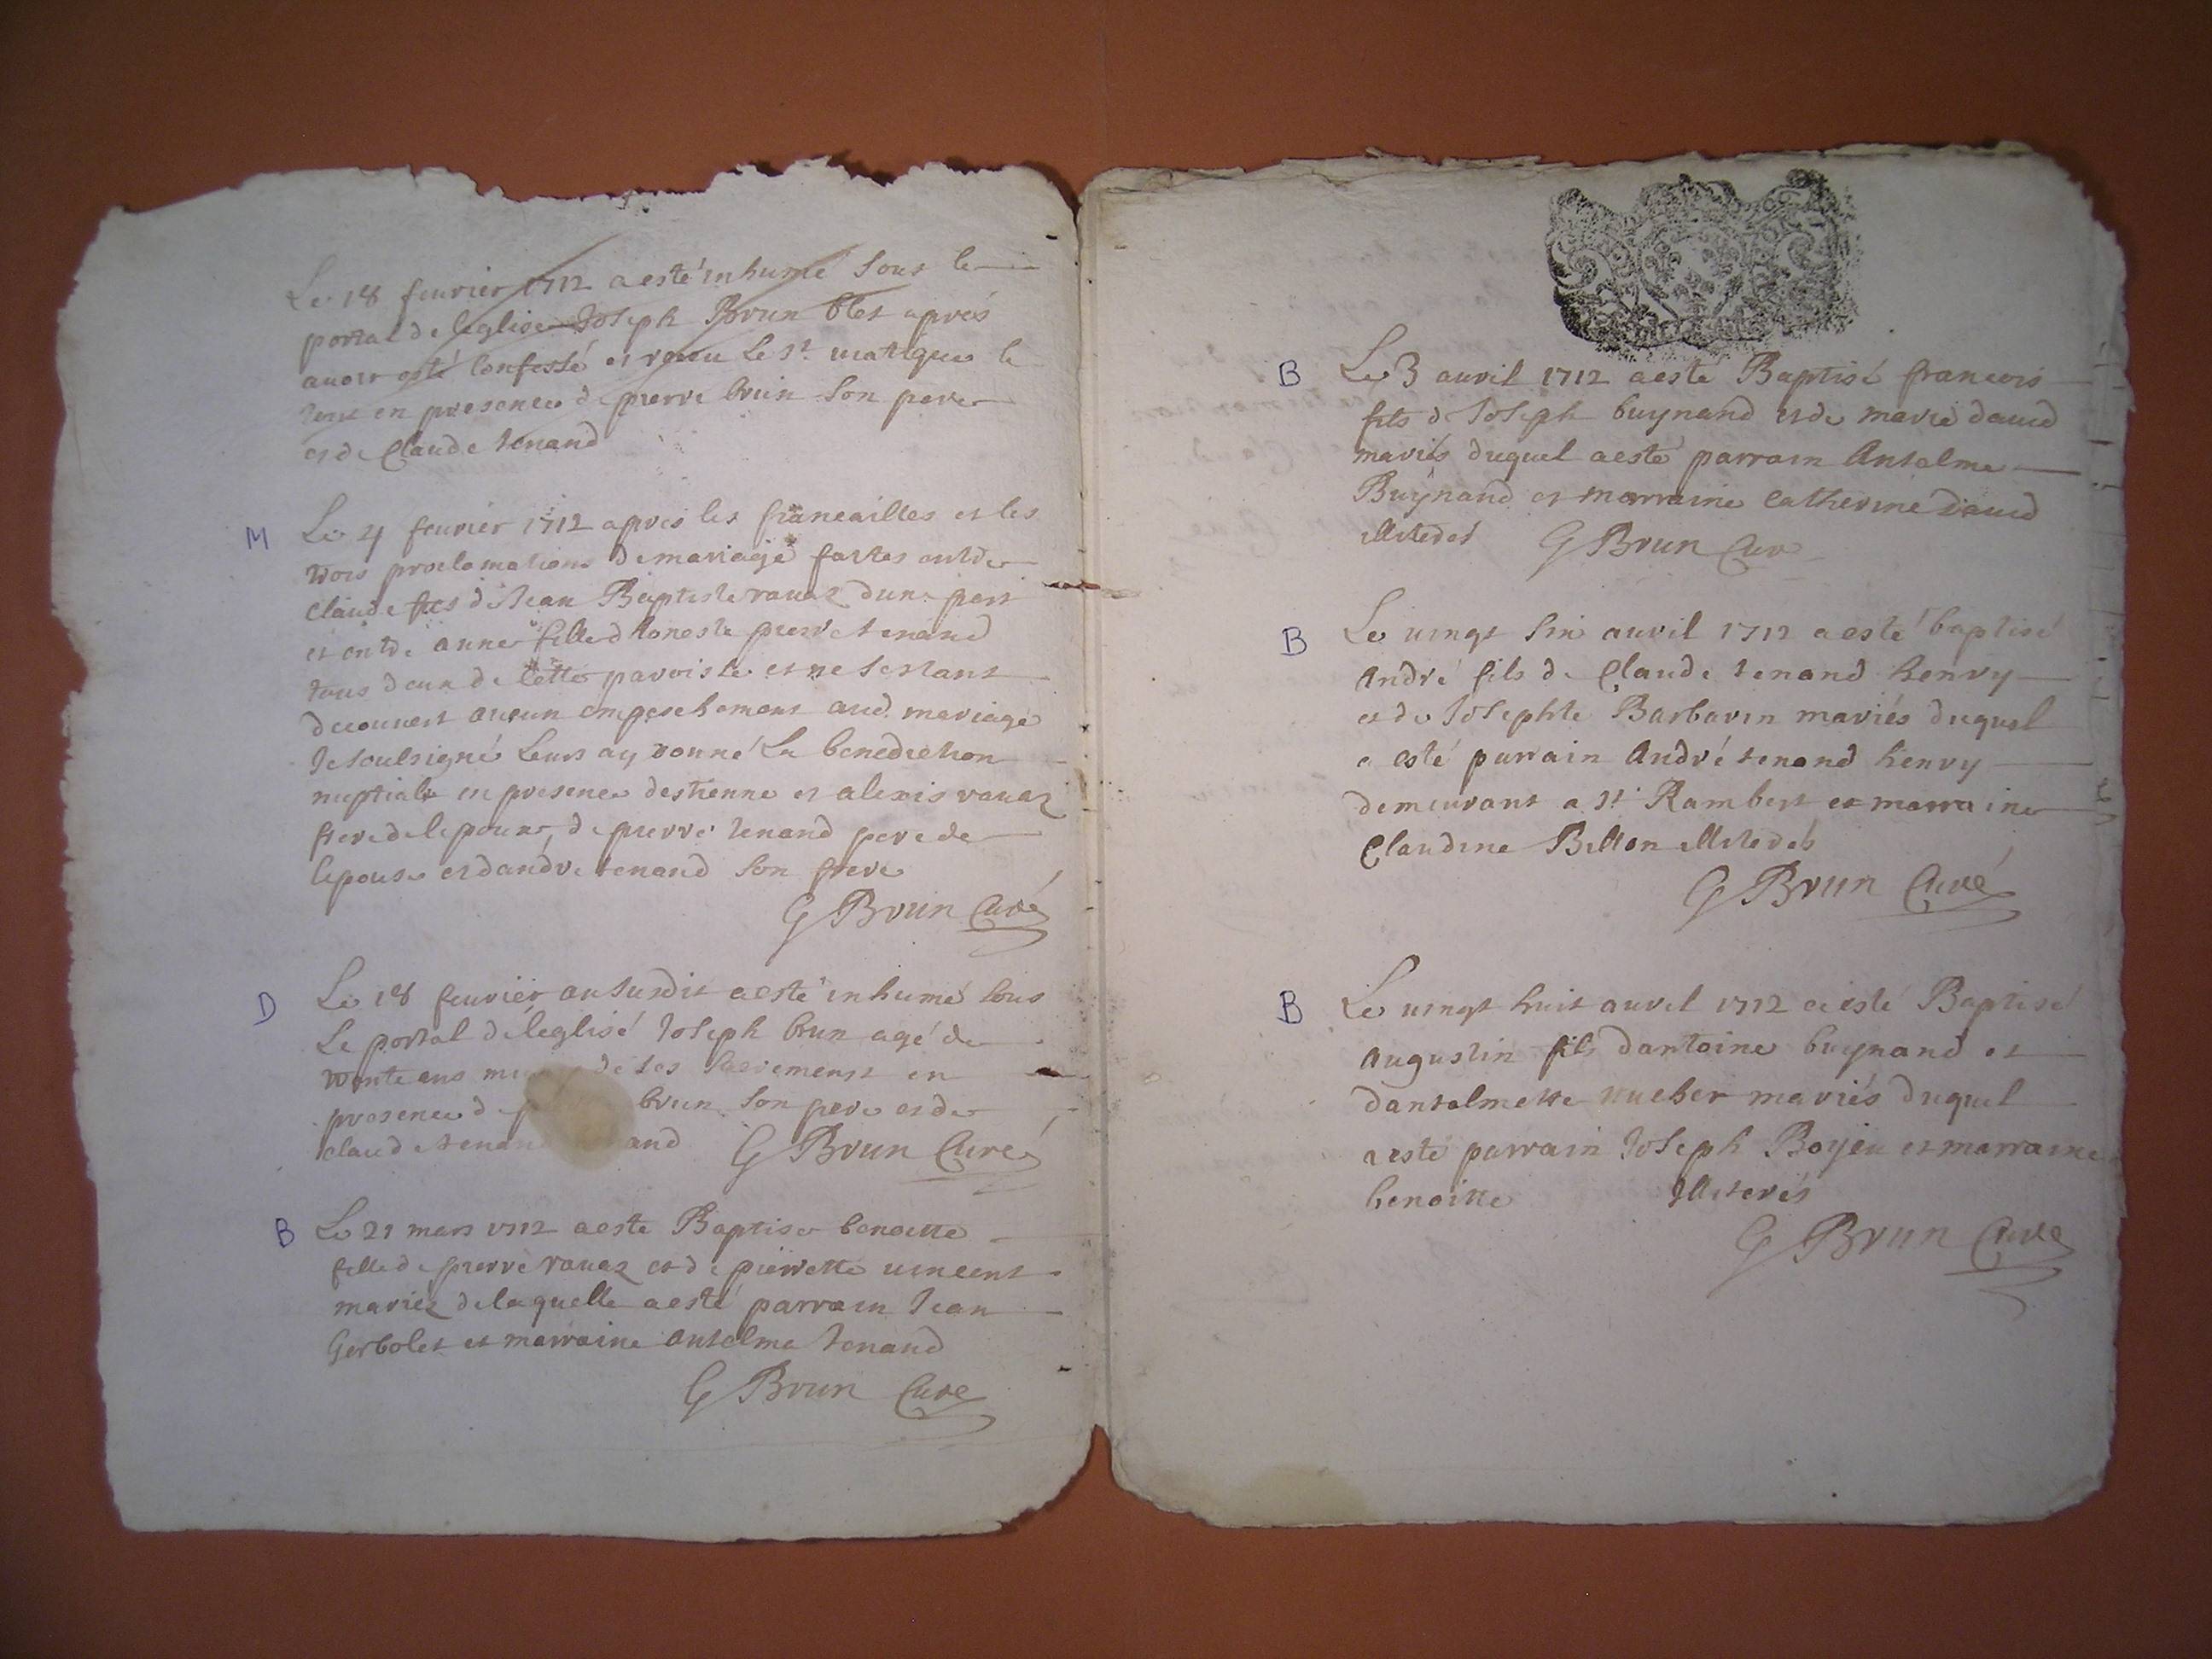 Le 18 feuvrier 1712 a esté inhumé sous le
portal de leglise Joseph Brun blet aprés
avoir esté confessé et receu le st. viatique le
tout en presence de pierre brun son pere
et de Claude tenand
M
Le 4 feuvrier 1712 apres les fiancailles et les
trois proclamations de mariage faites entre
claude fils de Jean Baptiste ravaz dune part
et entre anne fille d honeste pierre tenand
tous deux de cette paroisse et ne sestant
decouvert aucun empeschement aud. mariage
Je soulsigné leurs ay donné la benediction
nuptiale en presence destienne et alexis ravaz
frere de lepoux, de pierre tenand pere de
lepouse et dandre tenand son frere
G Brun Curé
D
Le 18 feuvrier an susdit a esté inhumé sous
Le portal de leglise Joseph brun agé de
trente ans de ses sacrements en
presence de brun son pere et de
claude tenand
G Brun Curé
B
Le 21 mars 1712 a esté Baptisee benoitte
fille de pierre ravaz et de pierrette vincent
mariez de laquelle a esté parrain Jean
Gerbolet et marraine anselma tenand
G Brun Curé
B
Le 3 auvril 1712 a esté Baptisé francois
fils de Joseph buynand et de marie david
mariés duquel a esté parrain Antelme
Buynand et marraine catherine david
illiterés G Brun Cur
B
Le vingt six auvril 1712 a esté baptisé
André fils de Claude tenand henry
et de Josephte Barbarin mariés duquel
a esté parrain André tenand henry
demeurant a st Rambert et marraine
Claudine Billon illiterés
G Brun Curé
B
Le vingt huit auvril 1712 a esté Baptisé
Augustin fils dantoine buynand et
dantelmette vucher mariés duquel
a esté parrain Joseph Boyeu et marraine
benoitte Illiterés
G Brun Curé